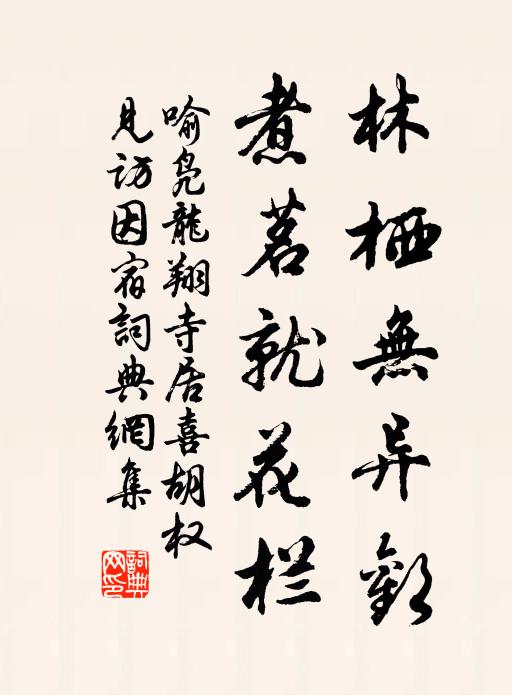 林栖無异歡
煮茗就花栏
喻凫龍翔寺居喜胡权
見訪因宿詞典網集
詞典
网印